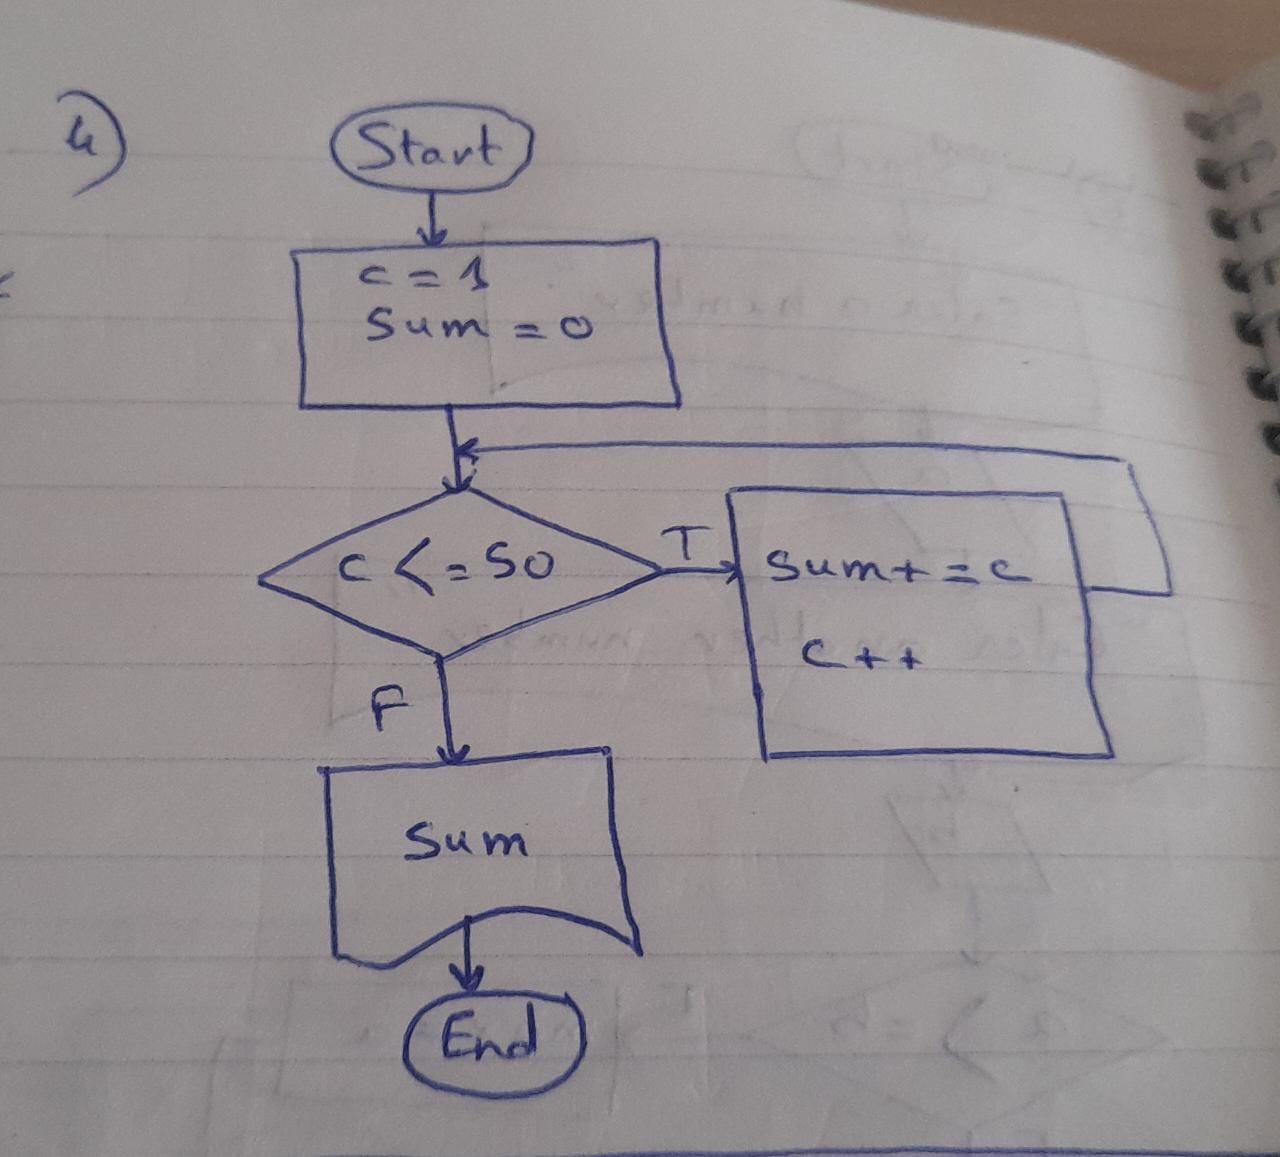 4)
Start
c = 1
Sum = 0
c <= 50
T
Sum+ = c
C++
F
Sum
End